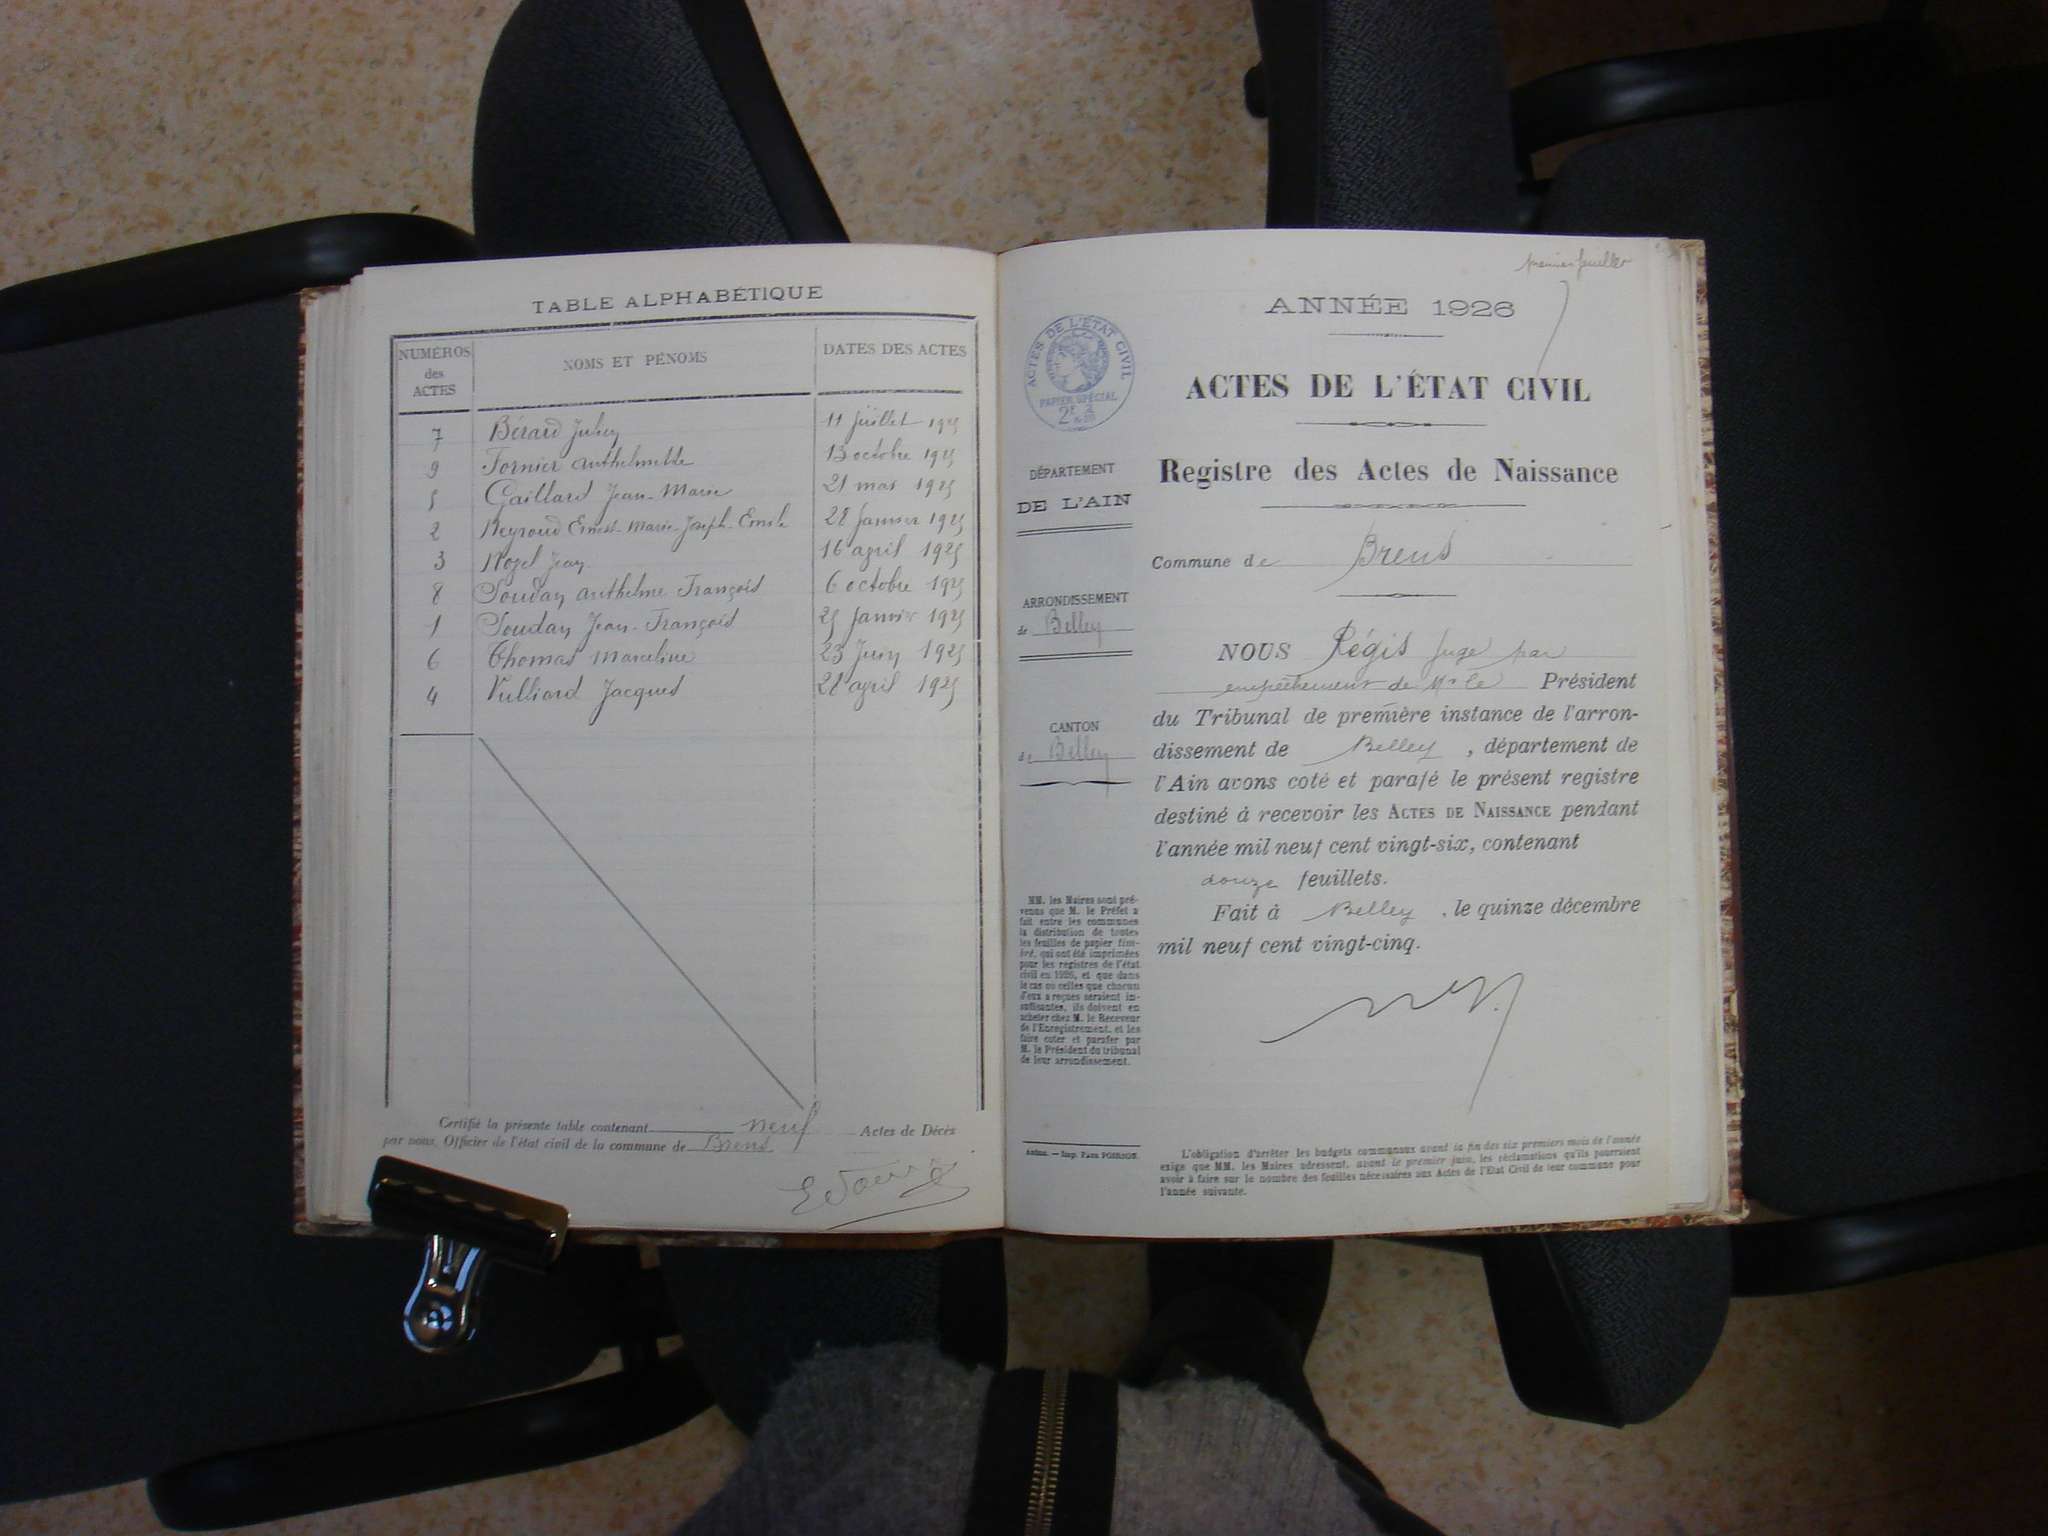 TABLE ALPHABÉTIQUE
NUMÉROS des ACTES NOMS ET PÉNOMS DATES DES ACTES
7 Bérard Julien 11 juillet 1925
9 Fornier Anthelmette 13 octobre 1925
5 Gaillard Jean-Marie 21 mai 1925
2 Neyroud Ernest-Marie-Joseph-Emile 28 Janvier 1925
3 Nozel Jean 16 april 1925
8 Soudan Anthelme François 6 octobre 1925
1 Soudan Jean-François 25 Janvier 1925
6 Thomas Marceline 23 Juin 1925
4 Vulliard Jacques 28 april 1925
Certifié la présente table contenant neuf Actes de Décès
par nous, Officier de l'état civil de la commune de Brens
premier feuillet
ANNÉE 1926
ACTES DE L'ÉTAT CIVIL
PAPIER SPÉCIAL
ACTES DE L'ÉTAT CIVIL
Registre des Actes de Naissance
DÉPARTEMENT
DE L'AIN
Commune de Brens
ARRONDISSEMENT
de Belley
CANTON
de Belley
NOUS Régis Juge par
empêchement de Mr le Président
du Tribunal de première instance de l'arron-
dissement de Belley, département de
l'Ain avons coté et parafé le présent registre
destiné à recevoir les ACTES DE NAISSANCE pendant
l'année mil neuf cent vingt-six, contenant
douze feuillets.
Fait à Belley, le quinze décembre
mil neuf cent vingt-cinq.
MM. les Maires sont pré-
venus que M. le Préfet a
fait entre les communes
la distribution de toutes
les feuilles de papier tim-
bré, qui ont été imprimées
pour les registres de l'état
civil en 1926, et que dans
le cas où celles que chacun
d'eux a reçues seraient in-
suffisantes, ils doivent en
acheter chez M. le Receveur
de l'Enregistrement, et les
faire coter et parafer par
M. le Président du tribunal
de leur arrondissement.
Imp. Paul POISSON.
L'obligation d'arrêter les budgets communaux avant la fin des six premiers mois de l'année
exige que MM. les Maires adressent, avant le premier juin, les réclamations qu'ils pourraient
avoir à faire sur le nombre des feuilles nécessaires aux Actes de l'Etat Civil de leur commune pour
l'année suivante.